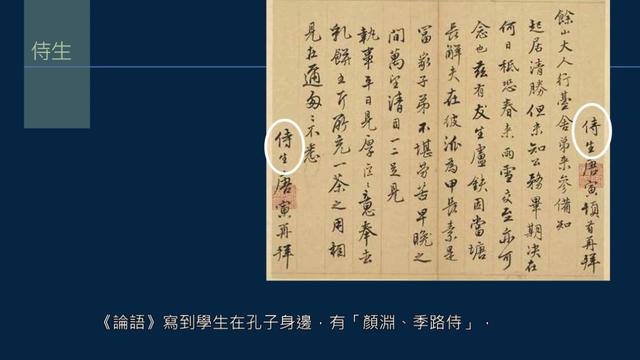 侍生
侍生唐寅頓首再拜
餘山大人行臺舍弟來參備知
起居清勝但未知公務畢期決在
何日秪恐春來雨雪交至亦可
念也茲有友生盧鈇因當塘
長解夫在彼派為甲長素是
富家子弟不堪勞苦早晚之
間萬望清目一二足見
執事平日見厚之意奉去
乳餅五斤所充一茶之用相
見在邇匆匆不悉
侍生唐寅再拜
《論語》寫到學生在孔子身邊，有「顏淵、季路侍」，